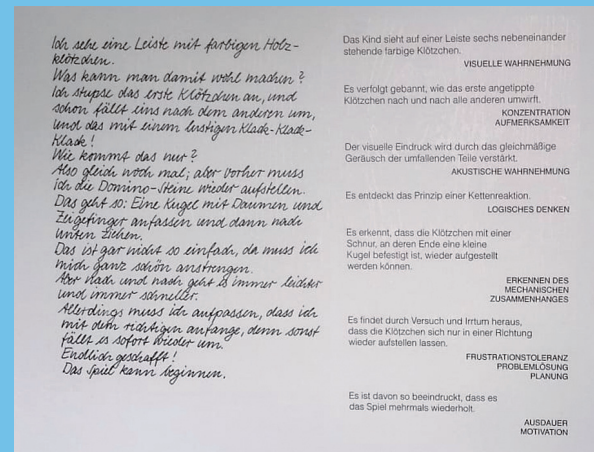 Ich sehe eine Leiste mit farbigen Holz-
klötzchen.
Was kann man damit wohl machen?
Ich stupse das erste Klötzchen an, und
schon fällt eins nach dem anderen um,
und das mit einem lustigen Klack-Klack-
Klack!
Wie kommt das nur?
Also gleich noch mal; aber vorher muss
ich die Domino-Steine wieder aufstellen.
Das geht so: Eine Kugel mit Daumen und
Zeigefinger anfassen und dann nach
unten ziehen.
Das ist gar nicht so einfach, da muss ich
mich ganz schön anstrengen.
Aber nach und nach geht es immer leichter
und immer schneller.
Allerdings muss ich aufpassen, dass ich
mit dem richtigen anfange, denn sonst
fällt es sofort wieder um.
Endlich geschafft!
Das Spiel kann beginnen.
Das Kind sieht auf einer Leiste sechs nebeneinander
stehende farbige Klötzchen.
VISUELLE WAHRNEHMUNG
Es verfolgt gebannt, wie das erste angetippte
Klötzchen nach und nach alle anderen umwirft.
KONZENTRATION
AUFMERKSAMKEIT
Der visuelle Eindruck wird durch das gleichmäßige
Geräusch der umfallenden Teile verstärkt.
AKUSTISCHE WAHRNEHMUNG
Es entdeckt das Prinzip einer Kettenreaktion.
LOGISCHES DENKEN
Es erkennt, dass die Klötzchen mit einer
Schnur, an deren Ende eine kleine
Kugel befestigt ist, wieder aufgestellt
werden können.
ERKENNEN DES
MECHANISCHEN
ZUSAMMENHANGES
Es findet durch Versuch und Irrtum heraus,
dass die Klötzchen sich nur in einer Richtung
wieder aufstellen lassen.
FRUSTRATIONSTOLERANZ
PROBLEMLÖSUNG
PLANUNG
Es ist davon so beeindruckt, dass es
das Spiel mehrmals wiederholt.
AUSDAUER
MOTIVATION